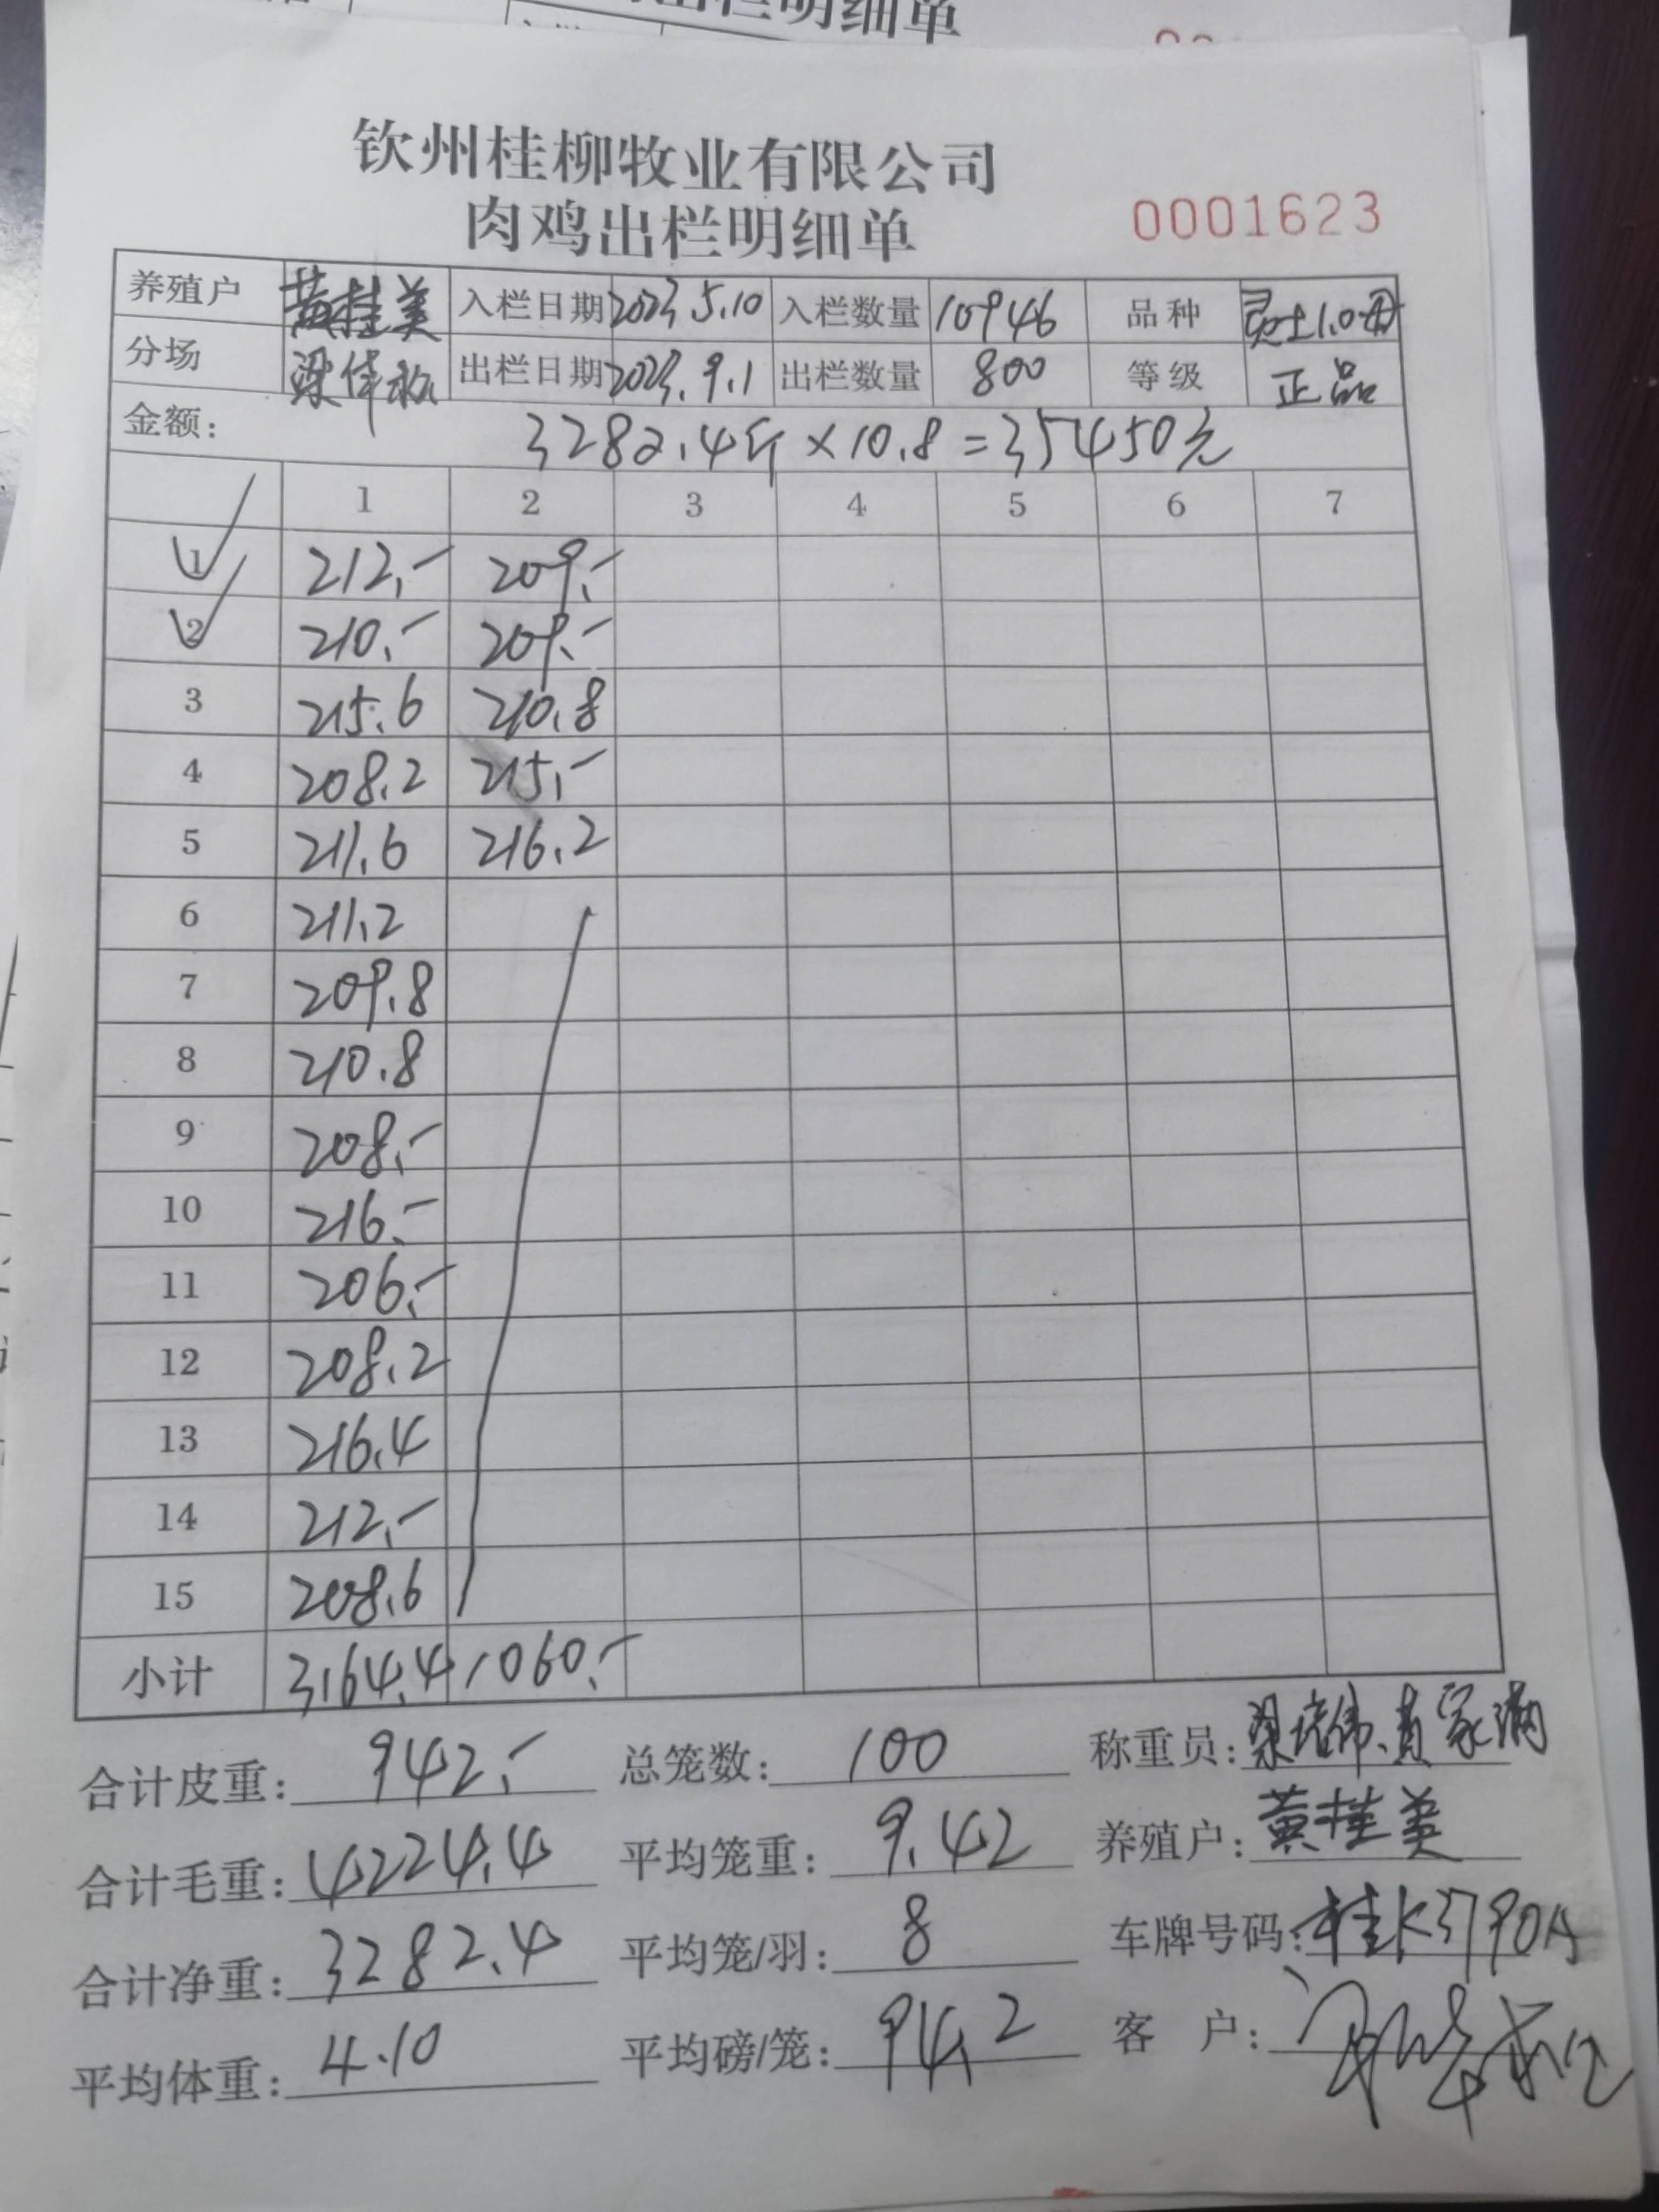 出栏明细单
钦州桂柳牧业有限公司
肉鸡出栏明细单 0001623
养殖户 黄桂美 入栏日期 2023.5.10 入栏数量 10946 品种 灵土1.0母
分场 出栏日期 2023.9.1 出栏数量 800 等级 正品
金额: 3282.4斤×10.8=35450元
1 2 3 4 5 6 7
1 212.- 209.-
2 210.- 209.-
3 215.6 210.8
4 208.2 215.-
5 211.6 216.2
6 211.2
7 209.8
8 210.8
9 208.-
10 216.-
11 206.-
12 208.2
13 216.4
14 212.-
15 208.6
小计 3164.4 1060.-
合计皮重: 942.- 总笼数: 100 称重员: 梁培伟、黄家满
合计毛重: 4224.4 平均笼重: 9.42 养殖户: 黄桂美
合计净重: 3282.4 平均笼/羽: 8 车牌号码: 桂K3790A
平均体重: 4.10 平均磅/笼: 94.2 客 户: